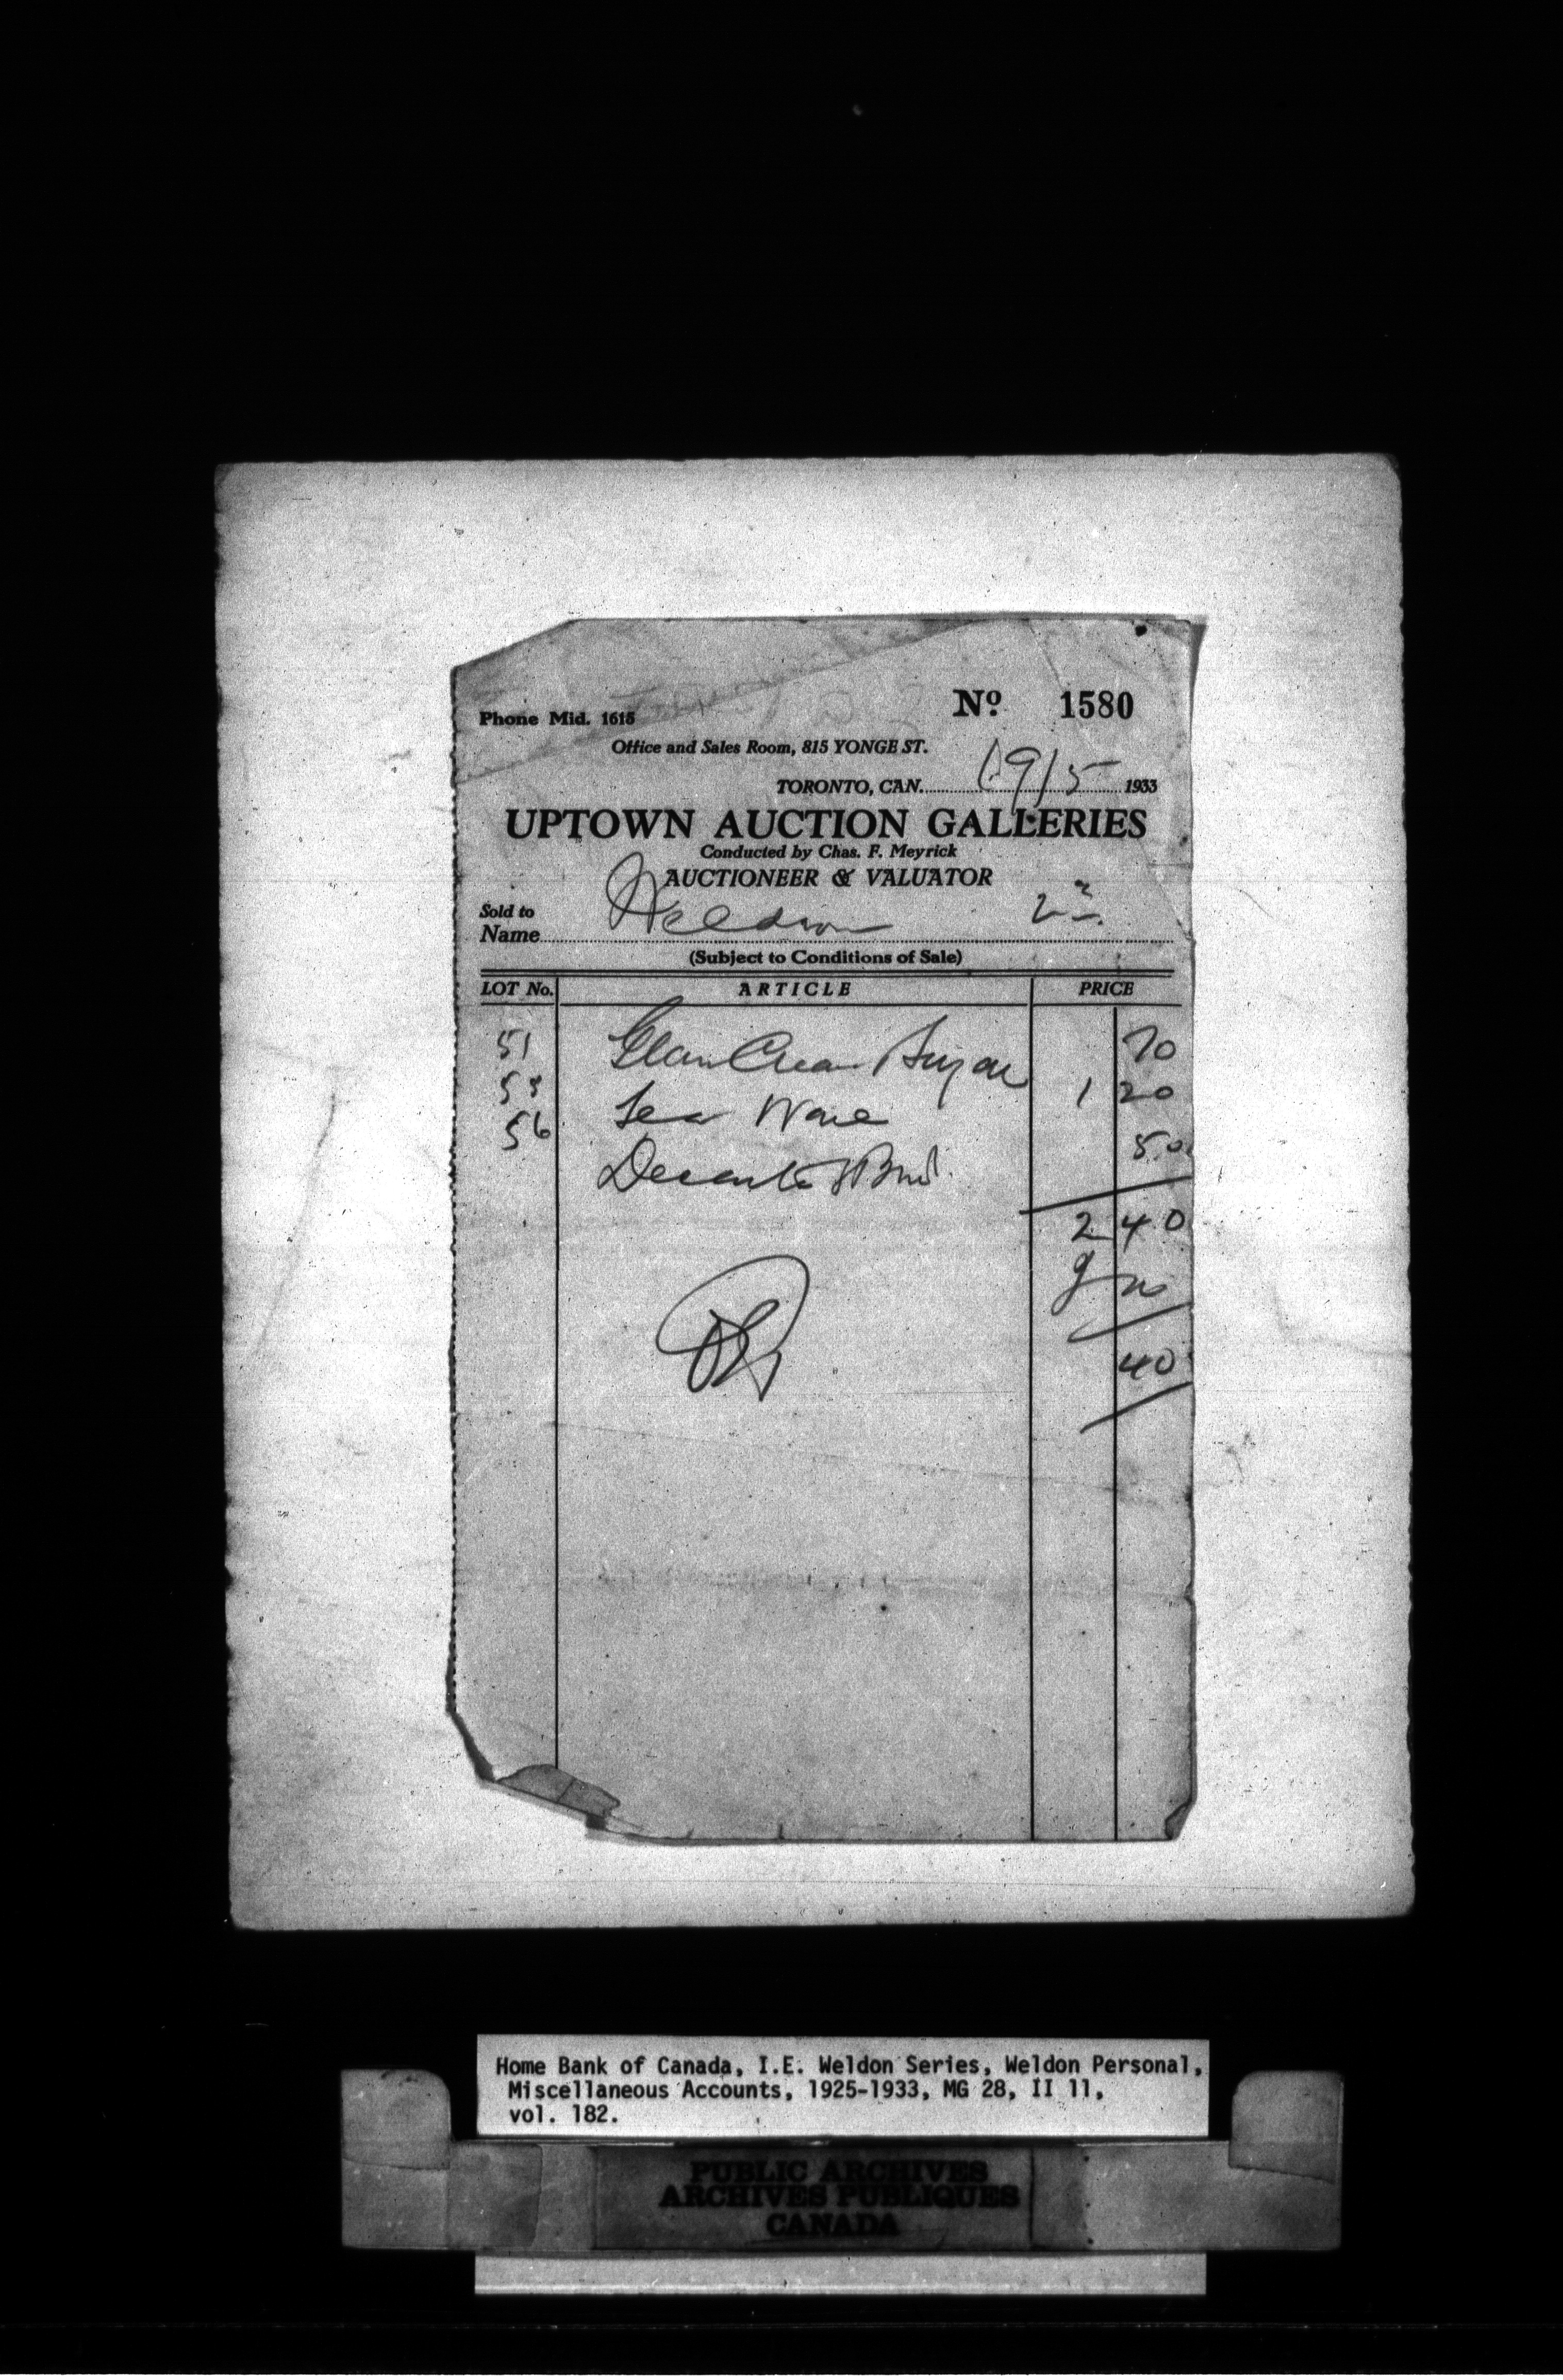 Phone Mid. 1615
Nº 1580
Office and Sales Room, 815 YONGE ST.
TORONTO, CAN. 19/5 1933
UPTOWN AUCTION GALLERIES
Conducted by Chas. F. Meyrick
AUCTIONEER & VALUATOR
Sold to
Name Weldon
(Subject to Conditions of Sale)
LOT No. ARTICLE PRICE
51 Glass Cream Sugar 70
55 Tea Ware 1 20
56 50
2 40
40
Home Bank of Canada, I.E. Weldon Series, Weldon Personal,
Miscellaneous Accounts, 1925-1933, MG 28, II 11,
vol. 182.
PUBLIC ARCHIVES
ARCHIVES PUBLIQUES
CANADA